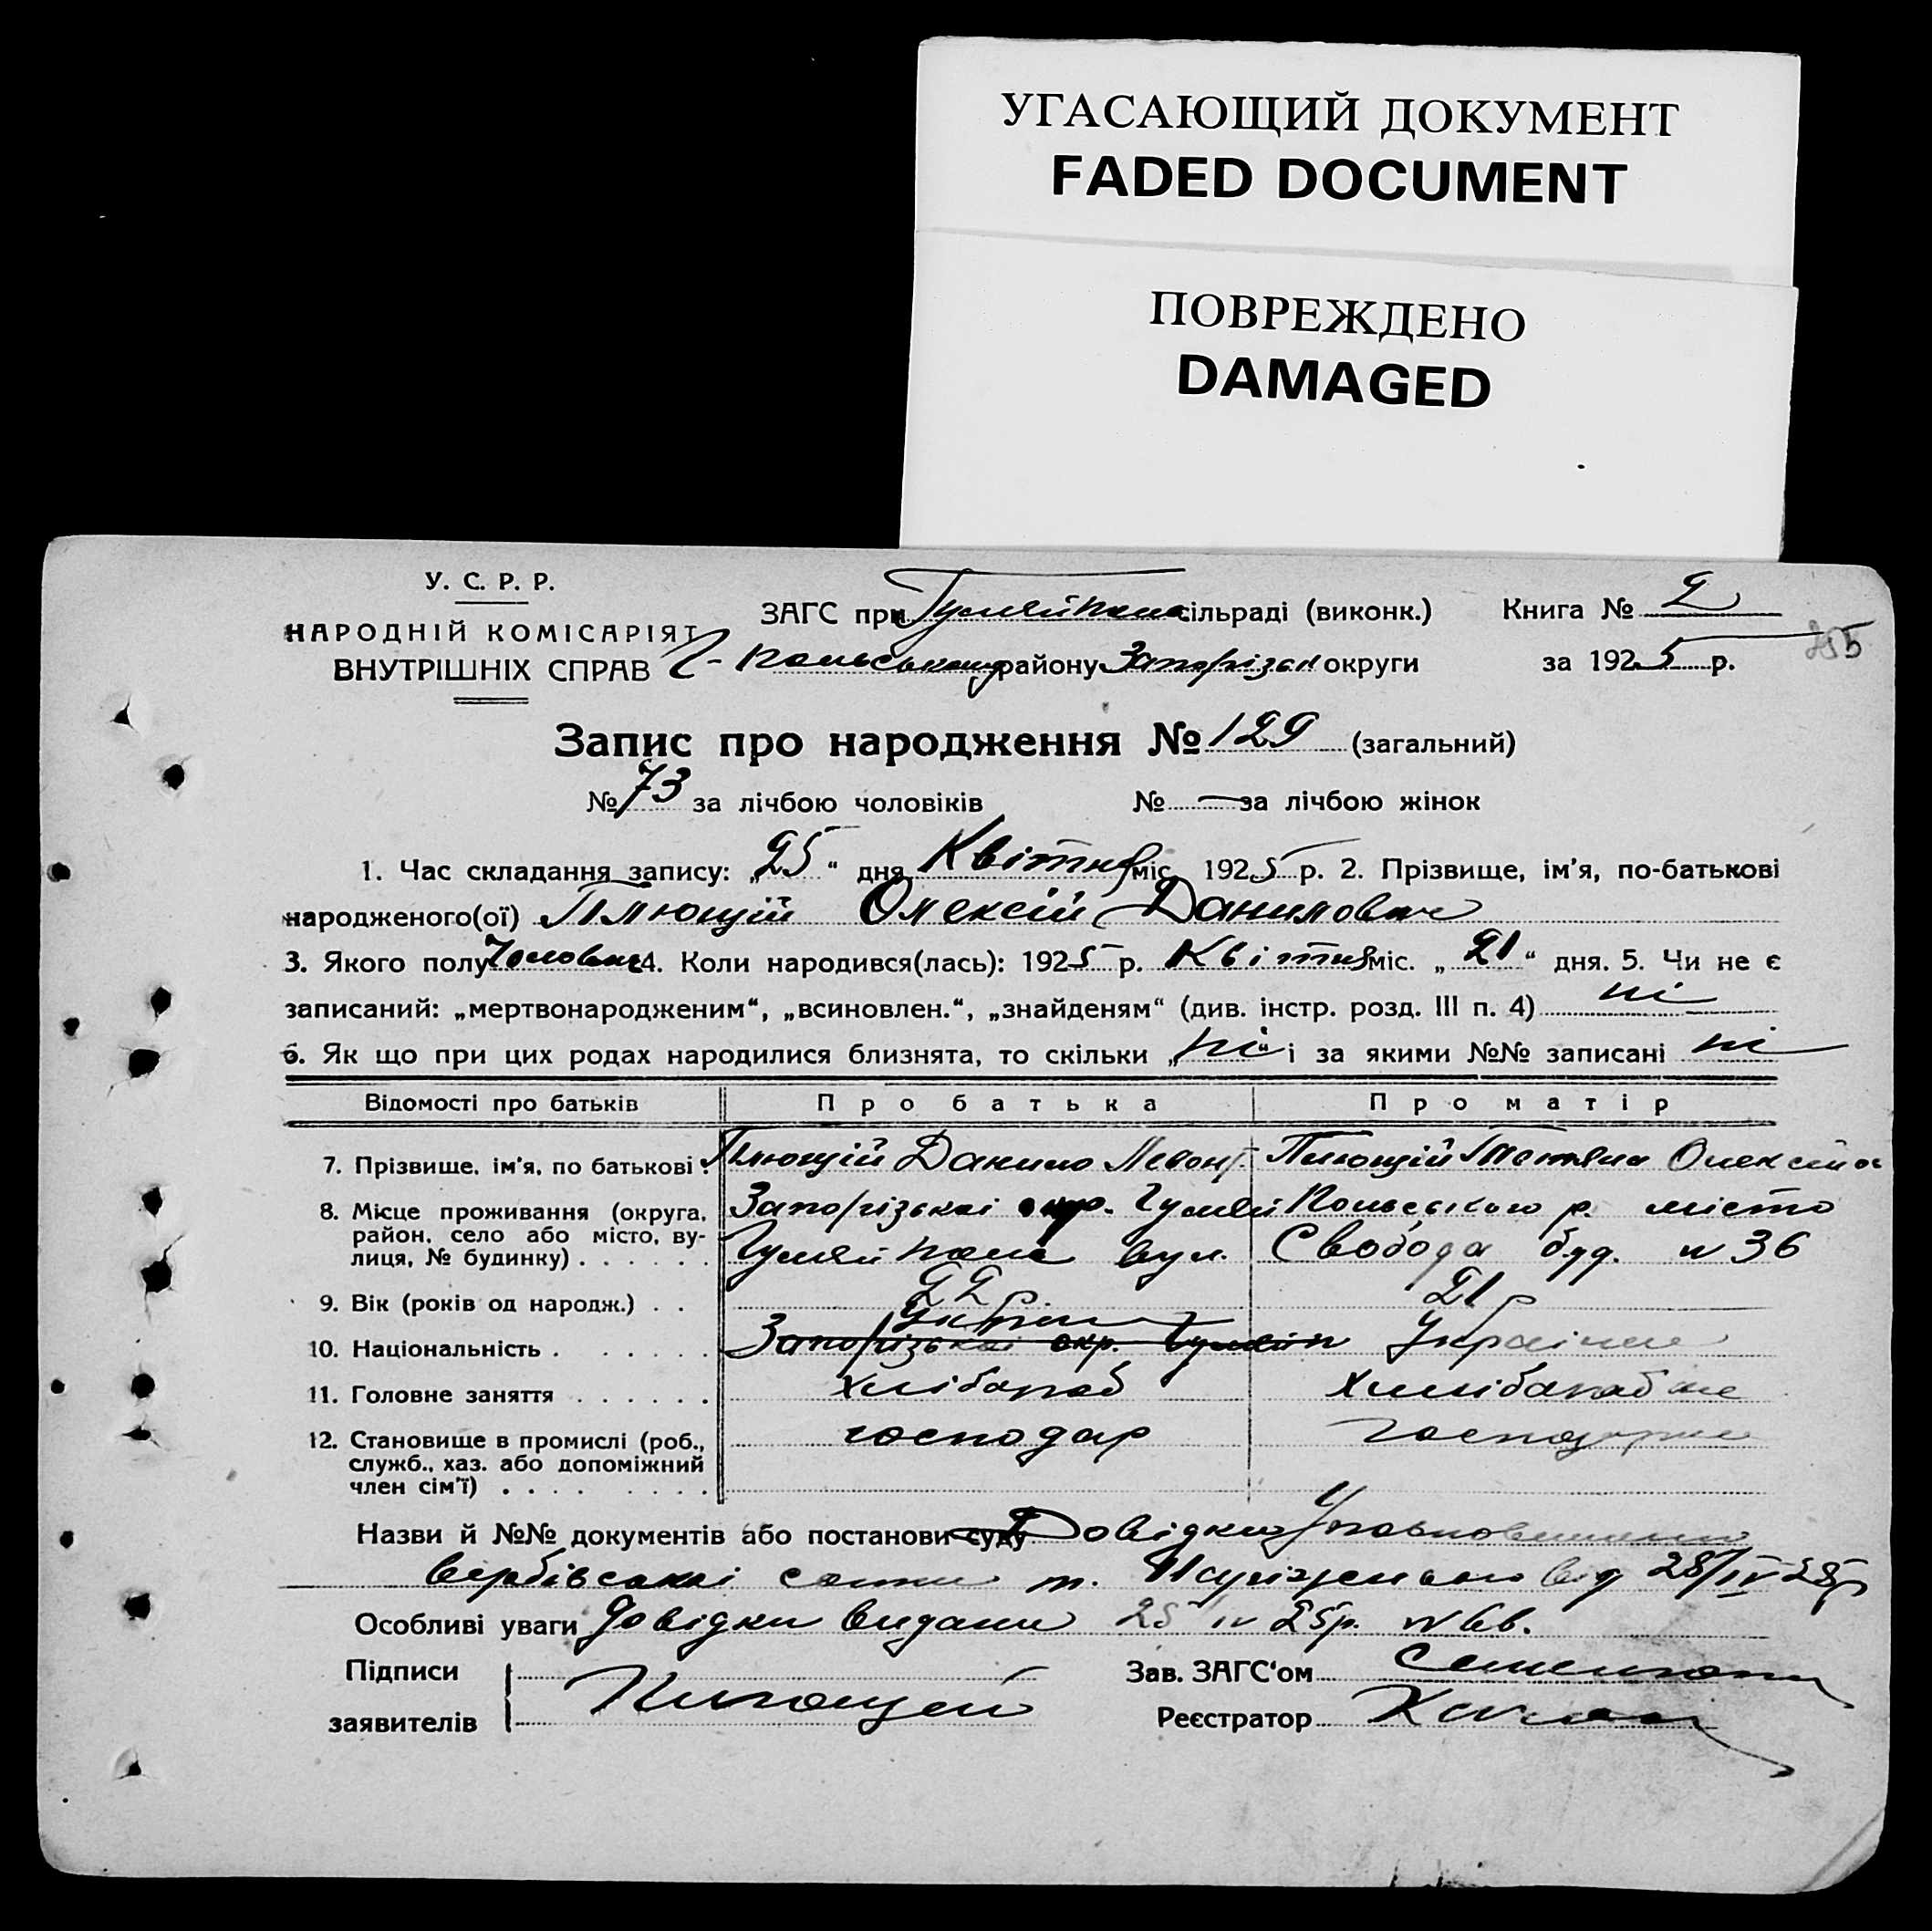 УГАСАЮЩИЙ ДОКУМЕНТ
FADED DOCUMENT
ПОВРЕЖДЕНО
DAMAGED
У. С. Р. Р.
НАРОДНІЙ КОМІСАРІЯТ
ВНУТРІШНІХ СПРАВ
ЗАГС при Гуляйпольс сільраді (виконк.) Книга № 2
Г-Польському району Запорізьк округи за 1925 р.
Запис про народження № 129 (загальний)
№ 73 за лічбою чоловіків № — за лічбою жінок
1. Час складання запису: „25“ дня Квітня міс. 1925 р. 2. Прізвище, ім'я, по-батькові
народженого(ої) Плющій Олексій Данилович
3. Якого полу Чоловіч 4. Коли народився(лась): 1925 р. Квітня міс. „21“ дня. 5. Чи не є
записаний: „мертвонародженим“, „всиновлен.“, „знайденям“ (див. інстр. розд. III п. 4) ні
6. Як що при цих родах народилися близнята, то скільки „ні“ і за якими №№ записані ні
Відомості про батьків Про батька Про матір
7. Прізвище, ім'я, по батькові. Плющій Данило Левонт. Плющій Тетяна Олексіїв
8. Місце проживання (округа, район, село або місто, вулиця, № будинку) Запорізькоі окр. Гуляй Польського р. місто
Гуляй Поле вул. Свобода буд. № 36
9. Вік (років од народж.) 22 р. 21 р
10. Національність Україн Запорізькоі окр. Гуляйп Українка
11. Головне заняття хлібороб Хліборобка
12. Становище в промислі (роб., служб., хаз. або допоміжний член сім'ї) господар господарка
Назви й №№ документів або постанови суду Довідки
Вербівськоі сотни т. від 28/IV 25р
Особливі уваги Довідки видани 25 IV 25р. №
Підписи
заявителів Плющей
Зав. ЗАГС'ом
Реєстратор